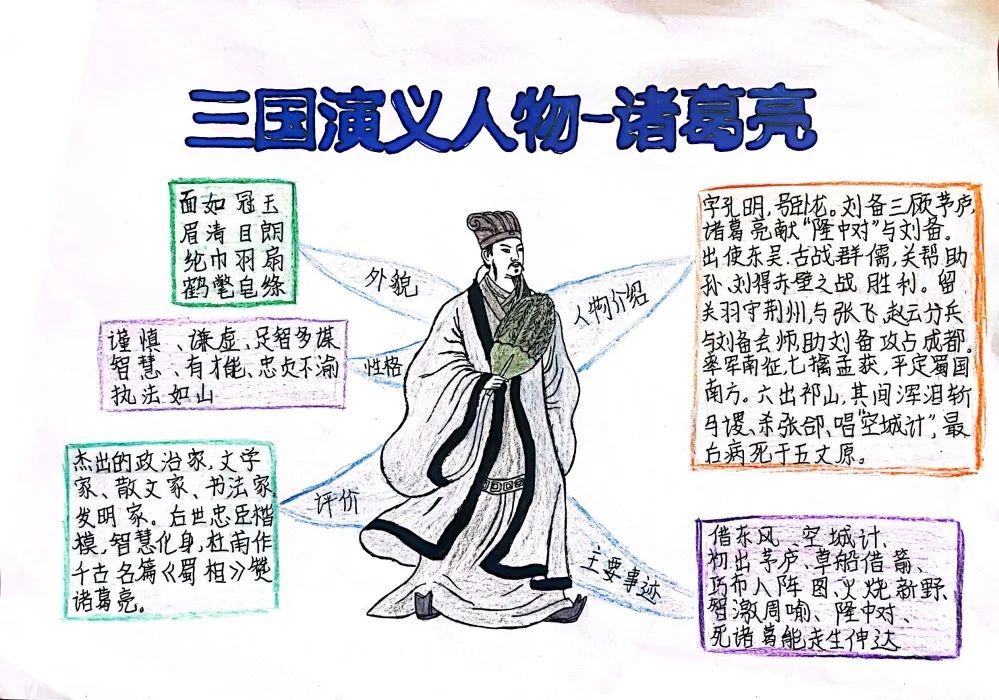 三国演义人物-诸葛亮
面如冠玉
眉清目朗
纶巾羽扇
鹤氅皂绦
外貌
谨慎、谦虚、足智多谋
智慧、有才能、忠贞不渝
执法如山
性格
杰出的政治家,文学
家、散文家、书法家
发明家。后世忠臣楷
模,智慧化身,杜甫作
千古名篇《蜀相》赞
诸葛亮。
评价
人物介绍
字孔明,号卧龙。刘备三顾茅庐,
诸葛亮献“隆中对”与刘备。
出使东吴.舌战群儒,关帮助
孙.刘得赤壁之战胜利。留
关羽守荆州,与张飞.赵云分兵
与刘备会师,助刘备攻占成都。
率军南征,七擒孟获,平定蜀国
南方。六出祁山,其间浑泪斩
马谡、杀张郃、唱“空城计”,最
后病死于五丈原。
主要事迹
借东风、空城计、
初出茅庐、草船借箭、
巧布八阵图、火烧新野、
智激周喻、隆中对、
死诸葛能走生仲达